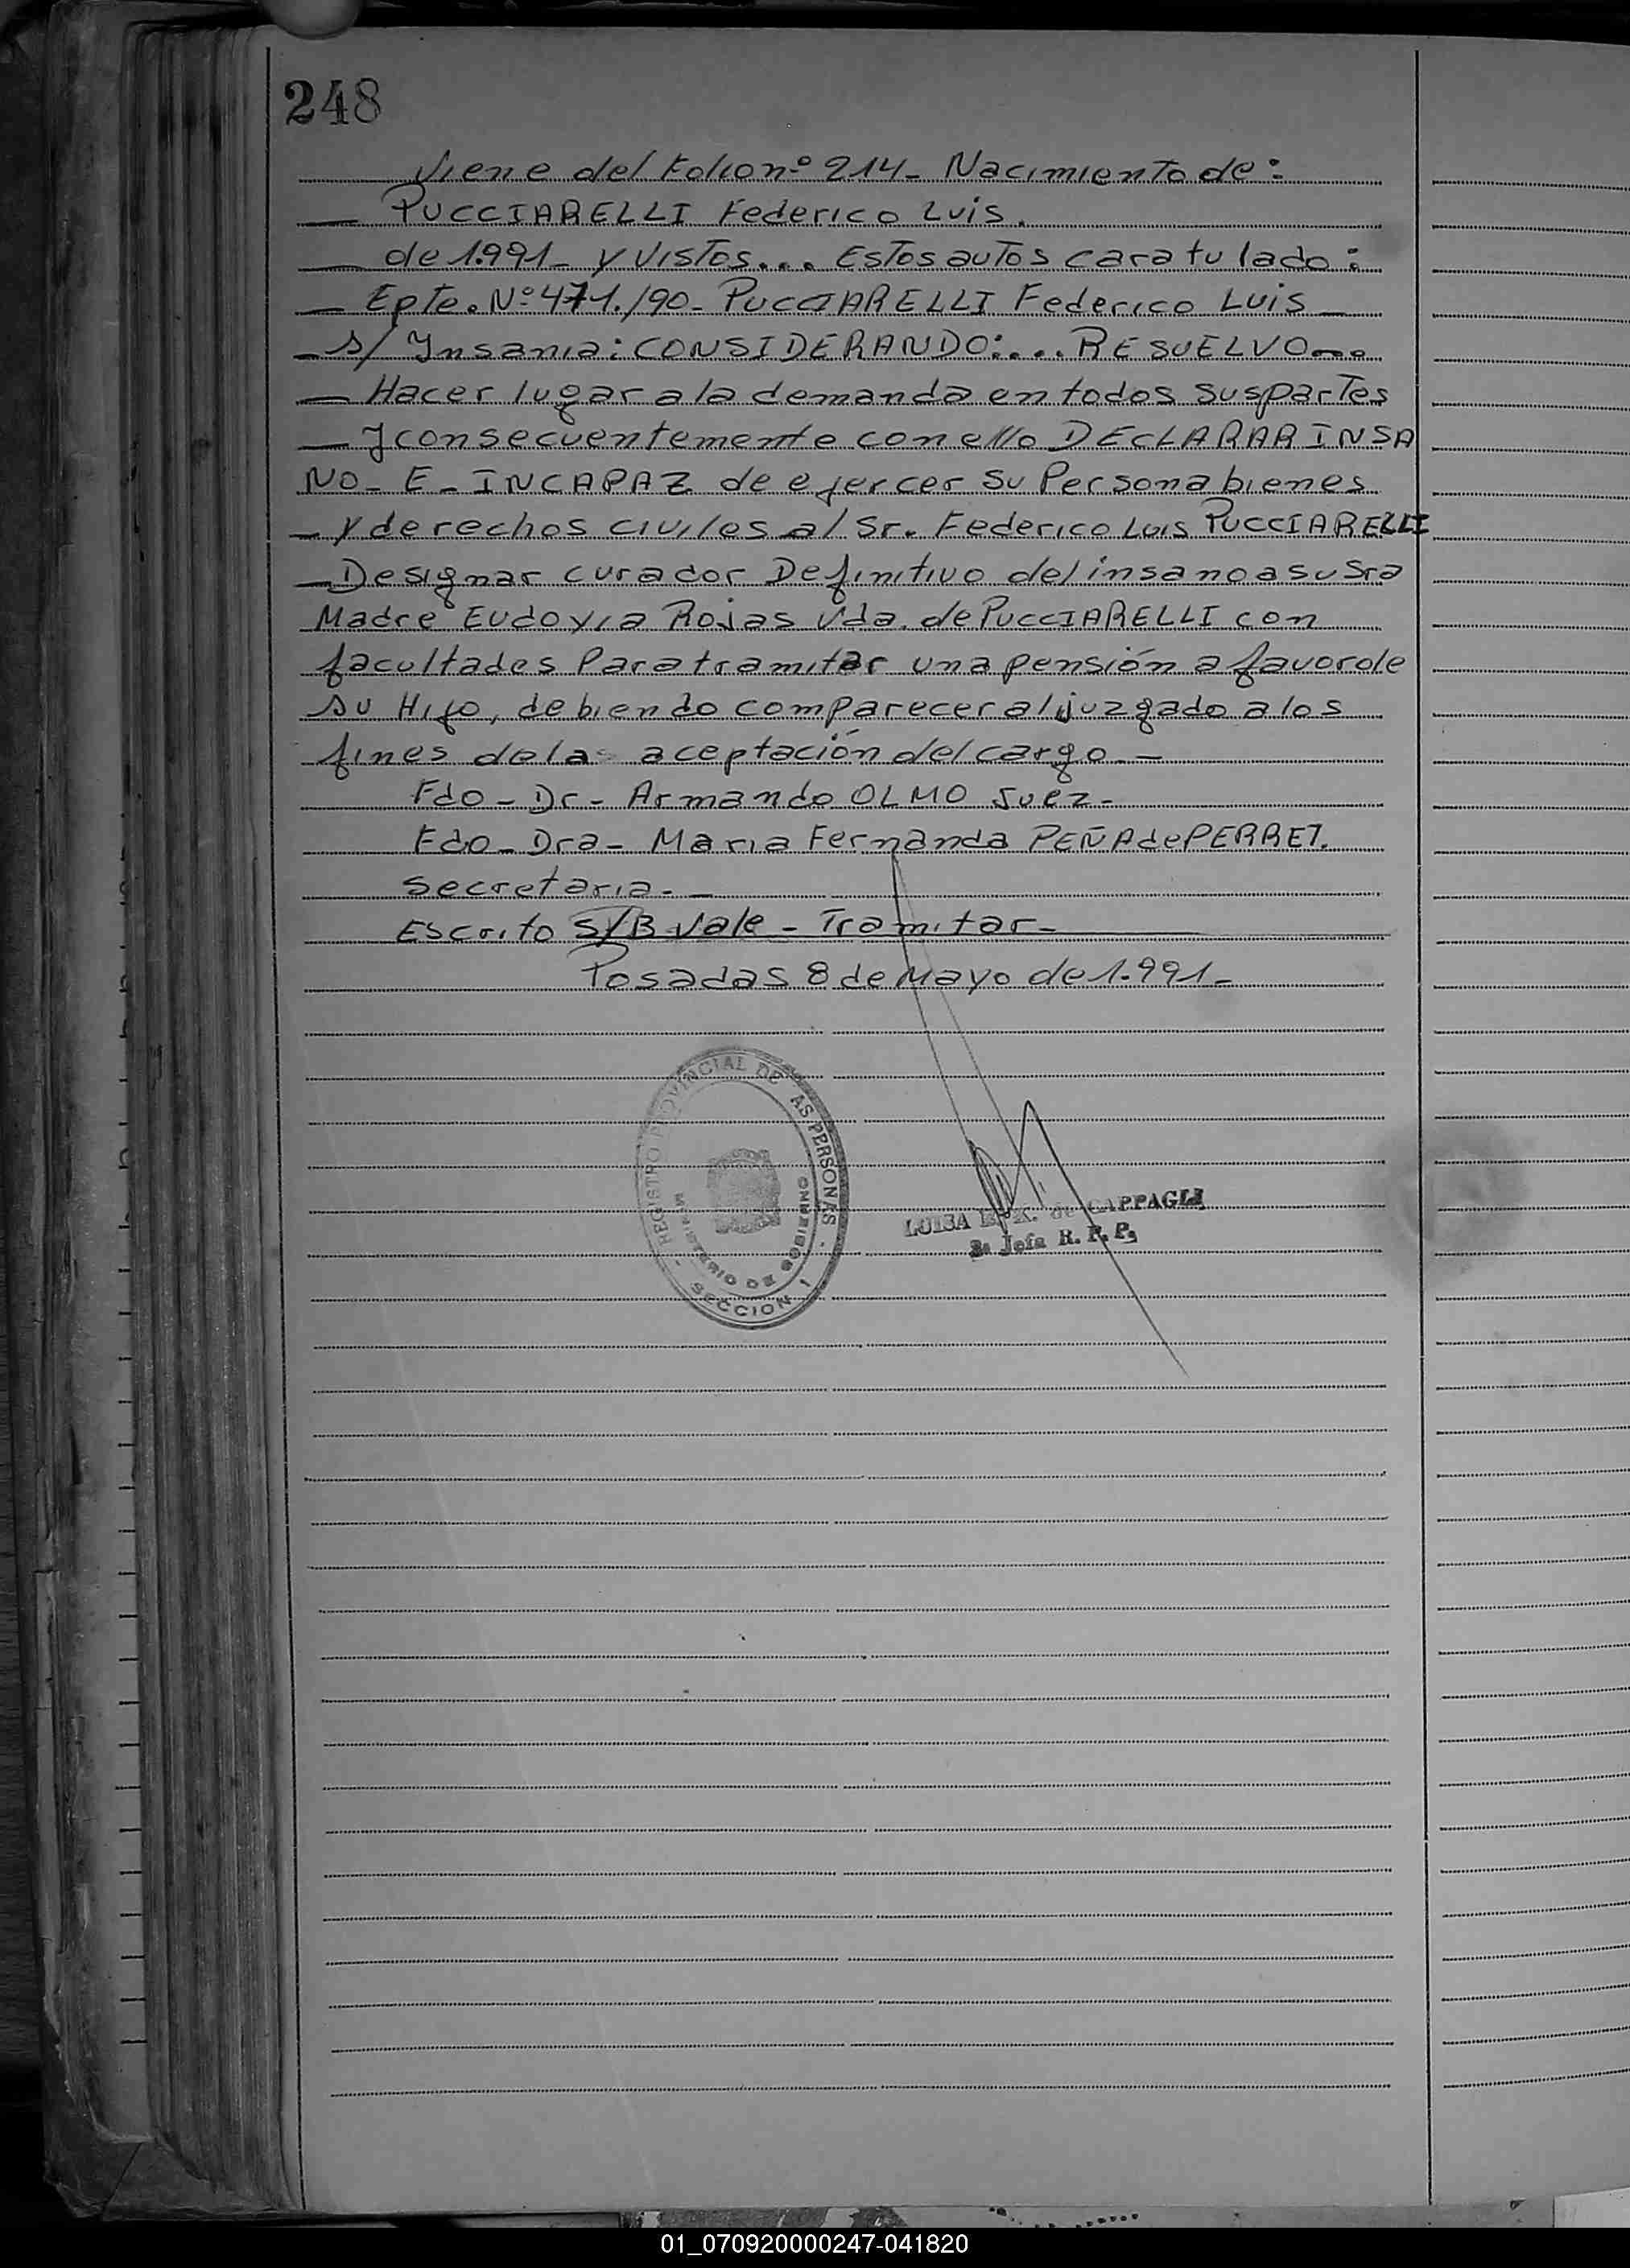 248
Viene del Folio nº 214- Nacimiento de:
PUCCIARELLI Federico Luis.
de 1.991- y Vistos... Estos autos caratulado:
Epte. Nº 471./90- PUCCIARELLI Federico Luis
s/ Ynsania: CONSIDERANDO:.... RESUELVO...
Hacer lugar a la demanda en todos sus partes
Y consecuentemente con ello DECLARAR INSA
NO- E- INCAPAZ de ejercer su Persona bienes
y derechos civiles al Sr. Federico Luis PUCCIARELLI
Designar curador Definitivo del insano a su Sra
Madre Eudoxia Rojas Vda. de PUCCIARELLI con
facultades Para tramitar una pensión a favor de
su Hijo, debiendo comparecer al juzgado a los
fines de la aceptación del cargo.-
Fdo- Dr- Armando OLMO Juez-
Fdo- Dra- Maria Fernanda PEÑA de PERRET.
Secretaria.-
Escrito S/B Vale- Tramitar-
Posadas 8 de Mayo de 1.991-
- REGISTRO PROVINCIAL DE LAS PERSONAS -
MINISTERIO DE GOBIERNO
SECCION 1
LUISA E. K. de CAPPAGLI
2a Jefa R. P. P.
01_070920000247-041820